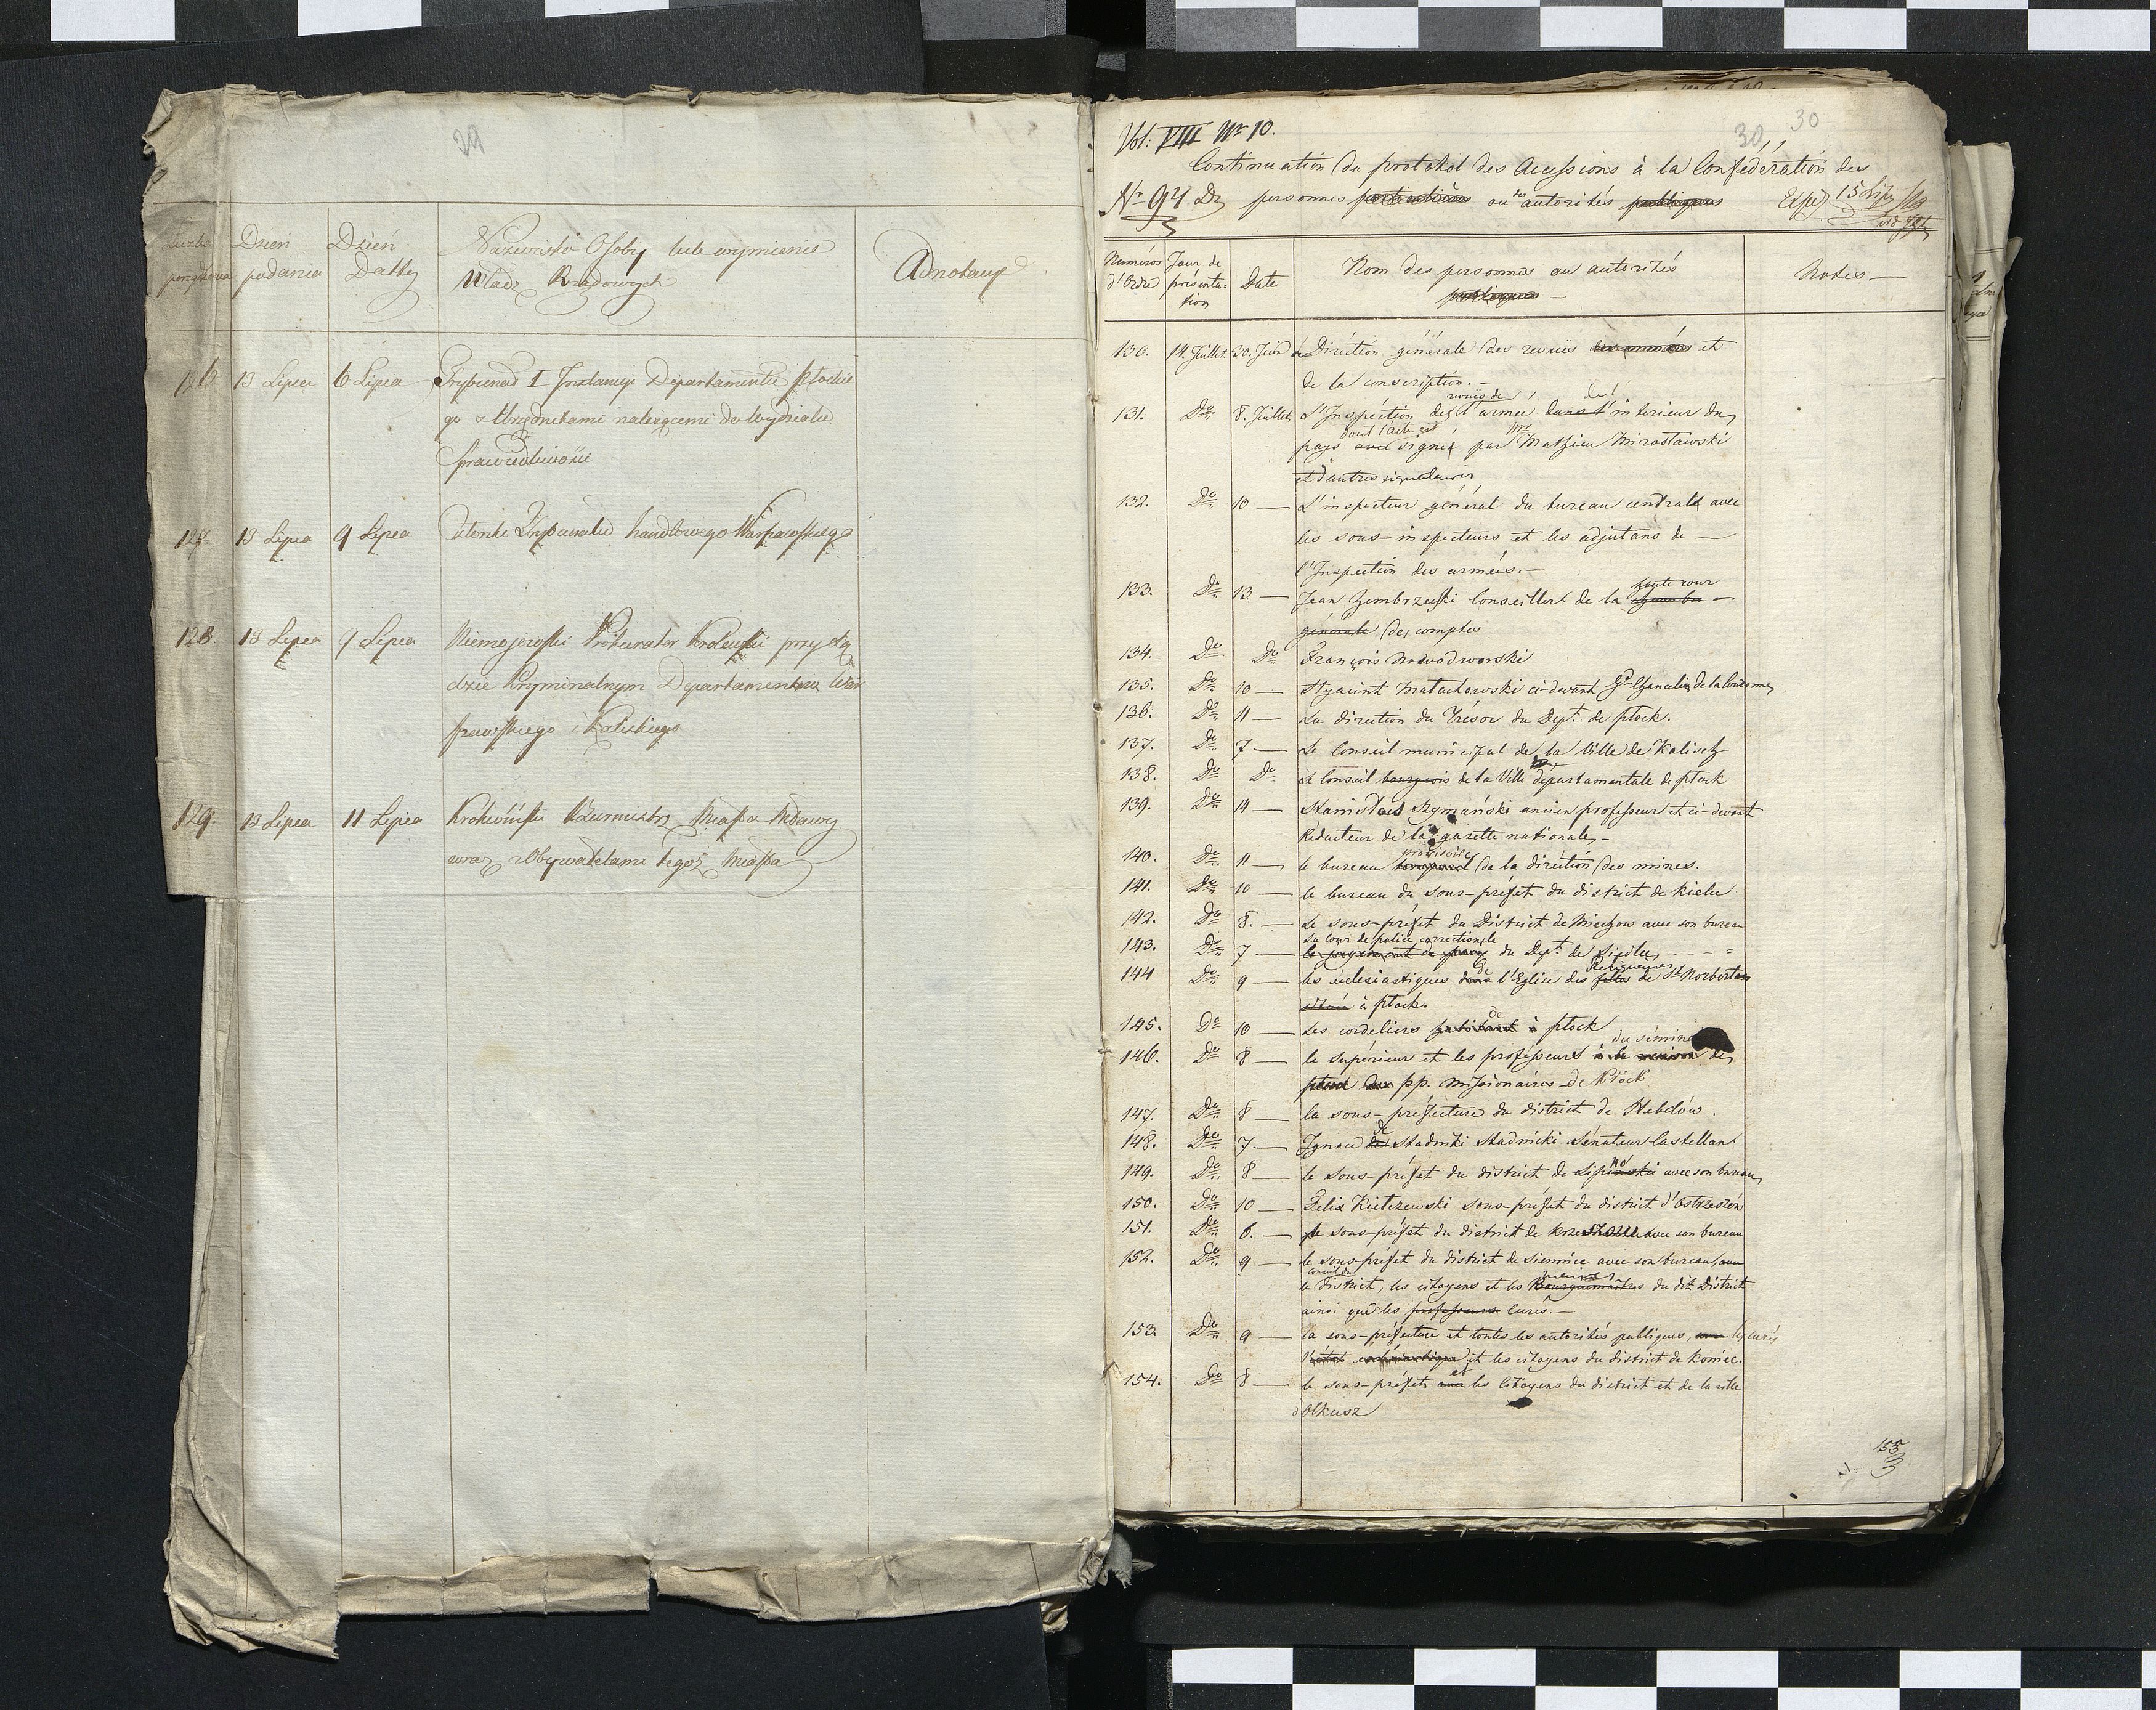 29
Liczba Dzień Dzień Nazwisko Osoby lub wymienie
porządkowa podania Datty Władz Rządowych Adnotacye
126 13 Lipca 6 Lipca Trybunał I Instancyi Departamentu Płockie
go z Urzędnikami należącemi do Wydziału
Sprawiedliwości
127. 13 Lipca 9 Lipca Członki Trybunału handlowego Warszawskiego
128. 13 Lipca 9 Lipca Niemojewski Prokurator Krolewski przy Są
dzie Kryminalnym Departamentu War
szawskiego i Kaliskiego
129. 13 Lipca 11 Lipca Burmistrz Miasta Mławy
wraz z Obywatelami tegoż Miasta
Vol: VIII Nr 10. 30 30
Continuation du protokol des Accessions à la Confédération des
Nr 94 Dz personnes particulières ou des autorités publiques Exp 15 Lip
Numéros Jour de Date Nom des personnes ou autorités Notes —
d'Ordre présenta- publiques —
tion
130. 14. Juillet 30. Juin la Diréction générale des revues des armées et
de la conscription. —
revues de de
131. Do 8. Juillet L'Inspéction de l'armée dans l'intérieur du
dont l'acte est Mr
pays avec signé par Mathieu Mirosławski
et d'autres signataires
132. Do 10 — L'inspecteur général du bureau central avec
les sous-inspecteurs et les adjutans de —
l'Inspection des armées. —
haute cour
133. Do 13 — Jean Zembrzuski Conseiller de la chambre —
générale des comptes
134. Do Do François Nowodworski
135. Do 10 — Hyacint Małachowski ci-devant Gd Chancelier de la Couronne
136. Do 11 — La diréction du Trésor du Dept. de Plock.
137. Do 7 — Le Conseil municipal de la Ville de Kalisch
138. Do Do Le Conseil bourgeois de la Ville départamentale de Plock
139. Do 14 — Stanislas Szymański ancien professeur et ci-devant
Rédacteur de la gazette nationale, —
provisoire
140. Do 11 — le bureau temporel de la diréction des mines.
141. Do 10 — le bureau du sous-préfet du district de Kielce
142. Do 8. — Le sous-préfet du District de Miechow avec son bureau
La Cour de police correctionele
143. Do 7 — du Dept. de Siedlec, — — —
de Religieuses
144 Do 9 — les eclesiastiques dans l'Eglise des filles de St Norbert
à Plock.
de
145. Do 10 — Les cordeliers à Plock
du sémina
146. Do 8 — le supérieur et les professeurs à la maison des
pp. Missionaires de Plock
147. Do 8 — la sous-préfecture du district de Hebdów.
148. Do 7 — Ignace de Stadnicki Stadnicki Sénateur Castellan
no
149. Do 8 — le sous-préfet du district de Lipinski avec son bureau
150. Do 10 — Felix Kiełczewski sous-préfet du district d'Ostrzeszów
151. Do 6. — le sous-préfet du district de avec son bureau
152. Do 9 — le sous-préfet du district de Siennice avec son bureau, avec
Conseil du
le district, les citoyens et les du dit District
ainsi que les professeurs curés. —
153. Do 9 — la sous-préfecture et toutes les autorités publiques, avec les curés
et les citoyens du district de Koniec.
et
154. Do 8 — le sous-préfet avec les Citoyens du district et de la ville
d'Olkusz
155